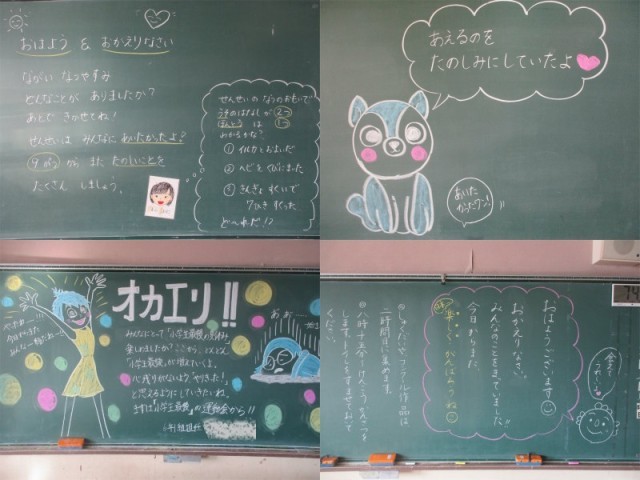 おはよう & おかえりなさい
ながい なつやすみ
どんなことが ありましたか?
あとで きかせてね!
せんせいは みんなに あいたかったよ?
9がつ が、また たのしいことを
たくさん しましょう。
せんせいの なつのおもいで
うそのはなしが 2つ
ほんとう は 1つ
わかるかな?
① イルカとおよいだ
② ヘビを くびにまいた
③ きんぎょ すくいで
7ひき すくった
ど〜れだ!?
あえるのを
たのしみにしていたよ
あいた
かったワン!
オカエリ!!
みんなにとって「小学生最後」の夏休み、
楽しめましたか?ここから、どんどん
「小学生最後」が増えていくよ。
心残りがないよう「やりきった!」
と思えるようにしていきたいね。
まずは「小学生最後」の運動会から!!
おはようございます
おかえりなさい。
みんなのことをまっていました!!
今日からまた
楽しく がんばろうね
◎しゅくだいやコンクール作品は、
二時間目に集めます。
ください。
会えて
うれしいよ